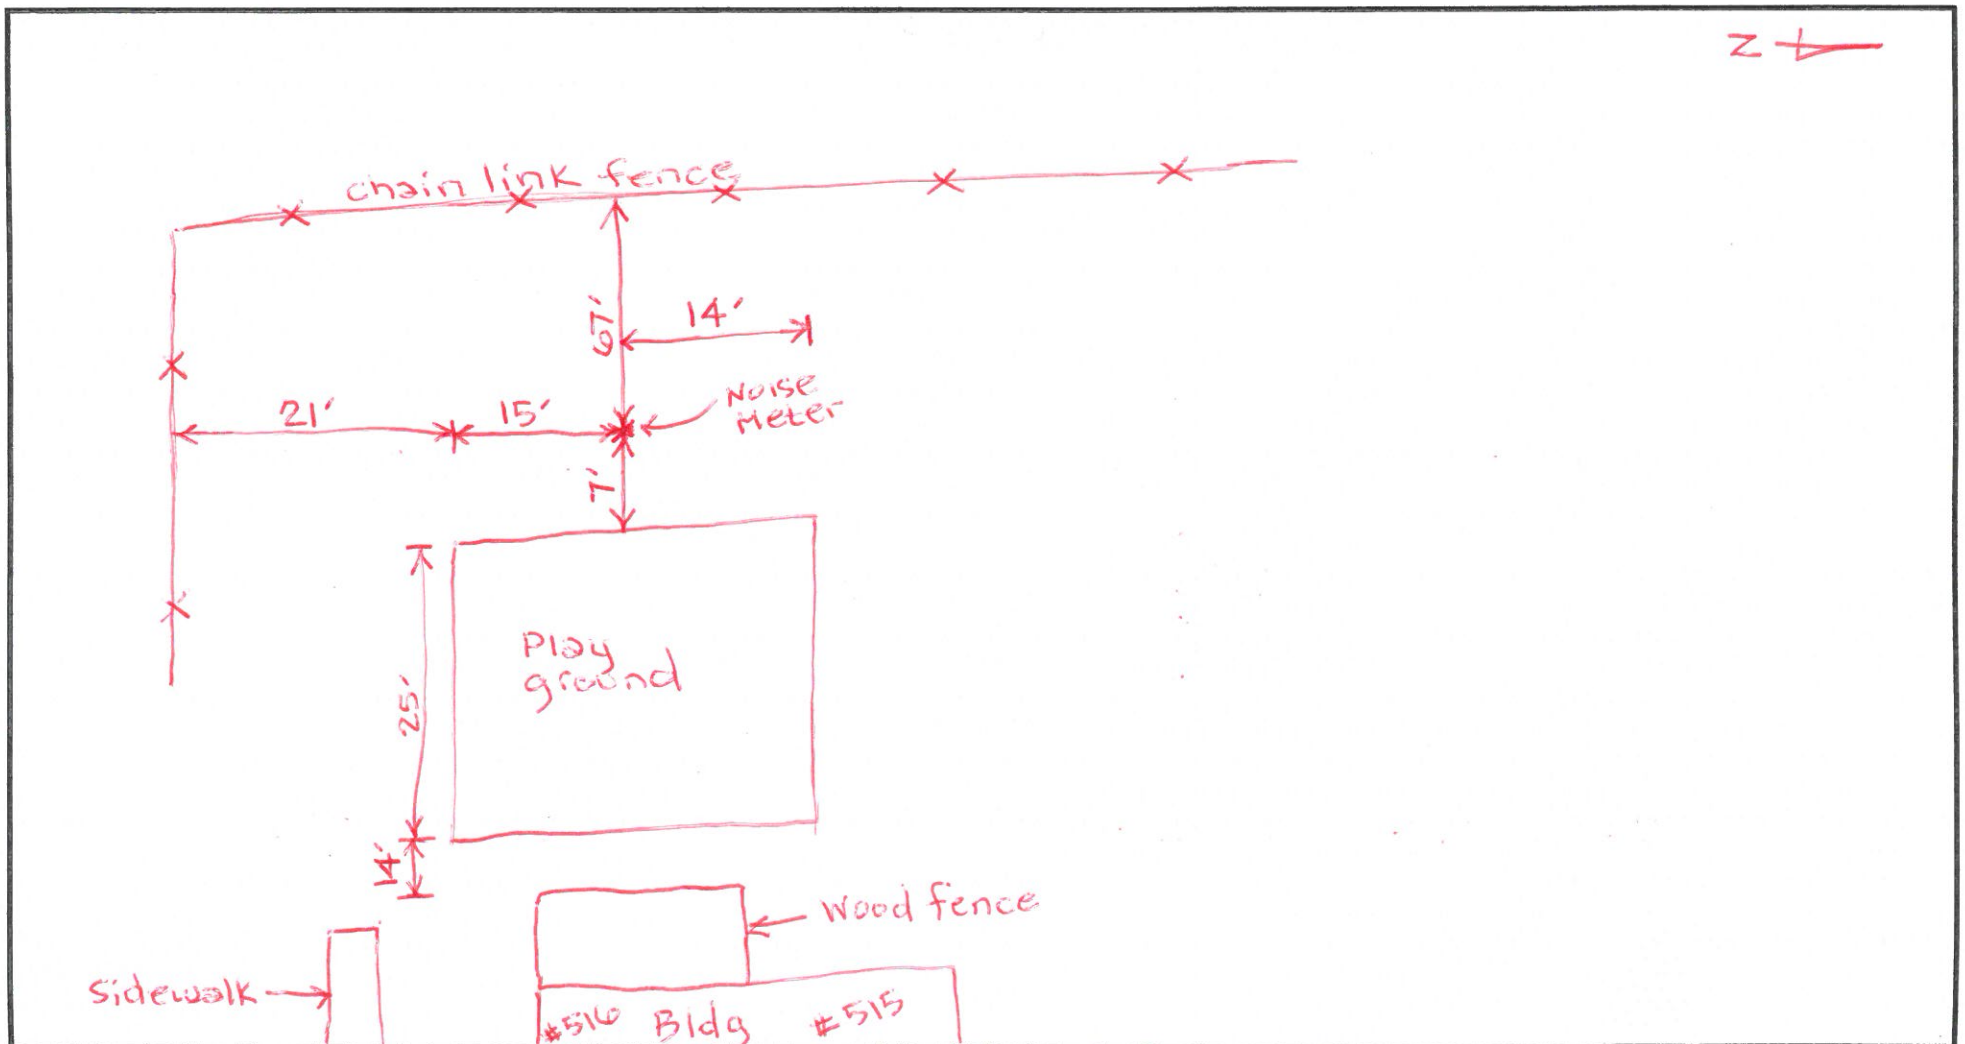 N
chain link fence
67'
14'
Noise
Meter
21'
15'
7'
Play
ground
25'
14'
Wood fence
Sidewalk
#516 Bldg #515